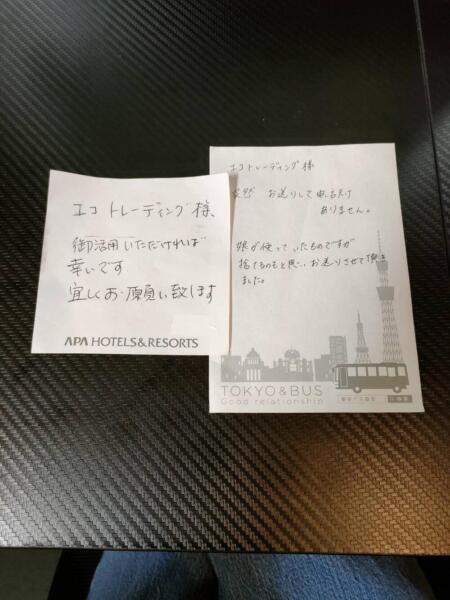 エコ トレーディング様
御活用いただければ
幸いです
宜しくお願い致します
APA HOTELS&RESORTS
エコトレーディング様
突然 お送りして申し訳
ありません。
娘が使っていたものですが
捨てるのもと思い お送りさせて頂き
ました。
TOKYO&BUS
Good relationship